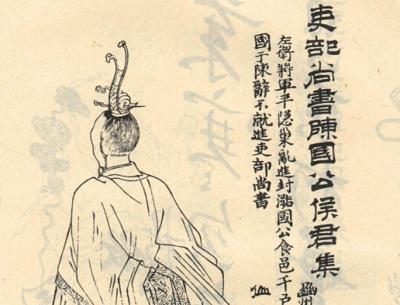 吏部尚書陳國公侯君集
左衛將軍平隱巢亂進封潞國公食邑千戶
國于陳辭不就進吏部尚書